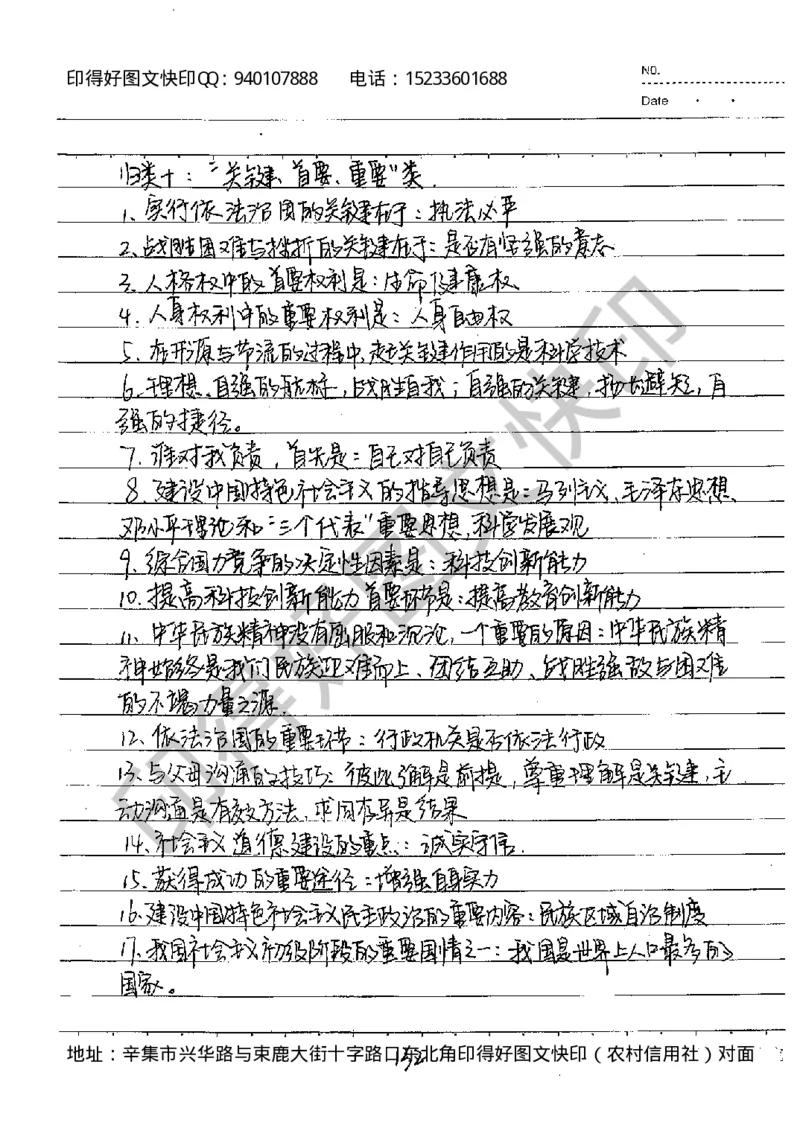 印得好图文快印QQ：940107888 电话：15233601688
NO.
Date
归类十："关键、首要、重要"类.
1、实行依法治国的关键在于：执法必严
2、战胜困难与挫折的关键在于：是否有坚强的意志
3、人格权中的首要权利是：生命健康权
4、人身权利中的重要权利是：人身自由权
5、在开源与节流的过程中，起关键作用的是科学技术
6、理想，自强的航标，战胜自我；自强的关键，扬长避短，自
强的捷径。
7、谁对我负责，首先是：自己对自己负责
8、建设中国特色社会主义的指导思想是：马列主义、毛泽东思想、
邓小平理论和"三个代表"重要思想，科学发展观
9、综合国力竞争的决定性因素是：科技创新能力
10、提高科技创新能力首要环节是：提高教育创新能力
11、中华民族精神没有屈服和沉沦，一个重要的原因：中华民族精
神始终是我们民族迎难而上、团结互助、战胜强敌与困难
的不竭力量之源.
12、依法治国的重要环节：行政机关是否依法行政
13、与父母沟通的技巧：彼此了解是前提，尊重理解是关键，主
动沟通是有效方法，求同存异是结果
14、社会主义道德建设的重点：诚实守信.
15、获得成功的重要途径：增强自身实力
16、建设中国特色社会主义民主政治的重要内容：民族区域自治制度
17、我国社会主义初级阶段的重要国情之一：我国是世界上人口最多的
国家。
地址：辛集市兴华路与束鹿大街十字路口东北角印得好图文快印（农村信用社）对面
152
印得好图文快印